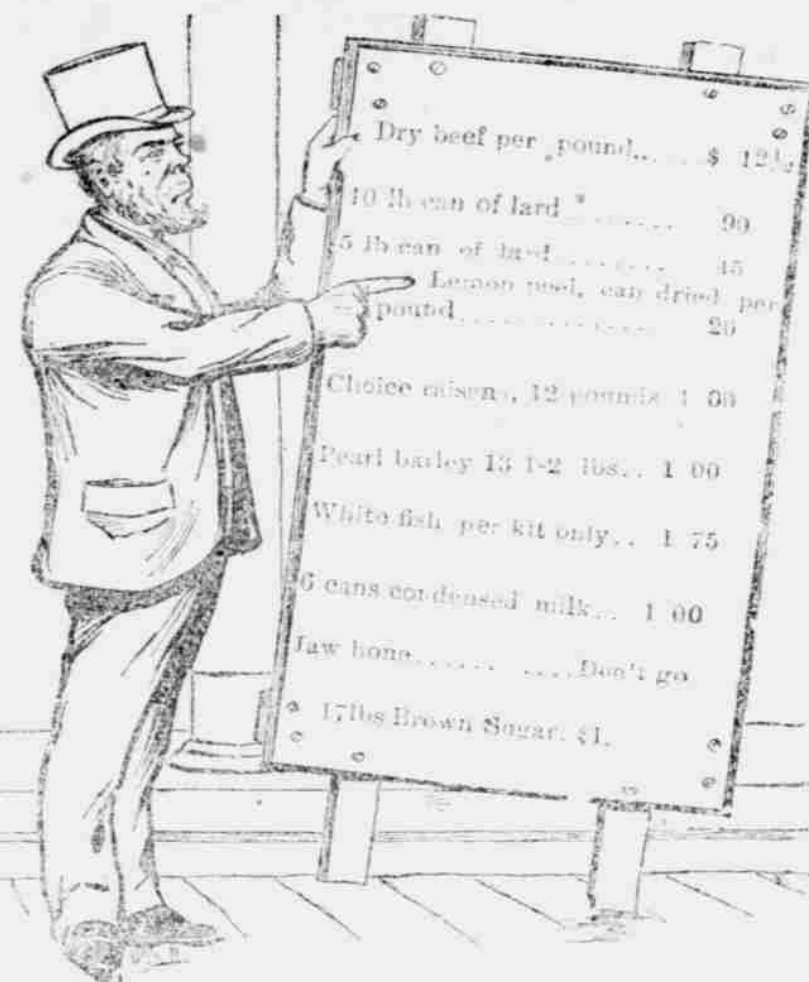 Dry beef per pound..... $ 12½
10 lb can of lard ....... 90
5 lb can of lard......... 45
Lemon peel, can dried, per
pound................ 20
Choice raisens, 12 pounds 1 00
Pearl barley 13 1-2 lbs.. 1 00
White fish per kit only.. 1 75
6 cans condensed milk... 1 00
Jaw bone....... ....Don't go
17lbs Brown Sugar. $1.